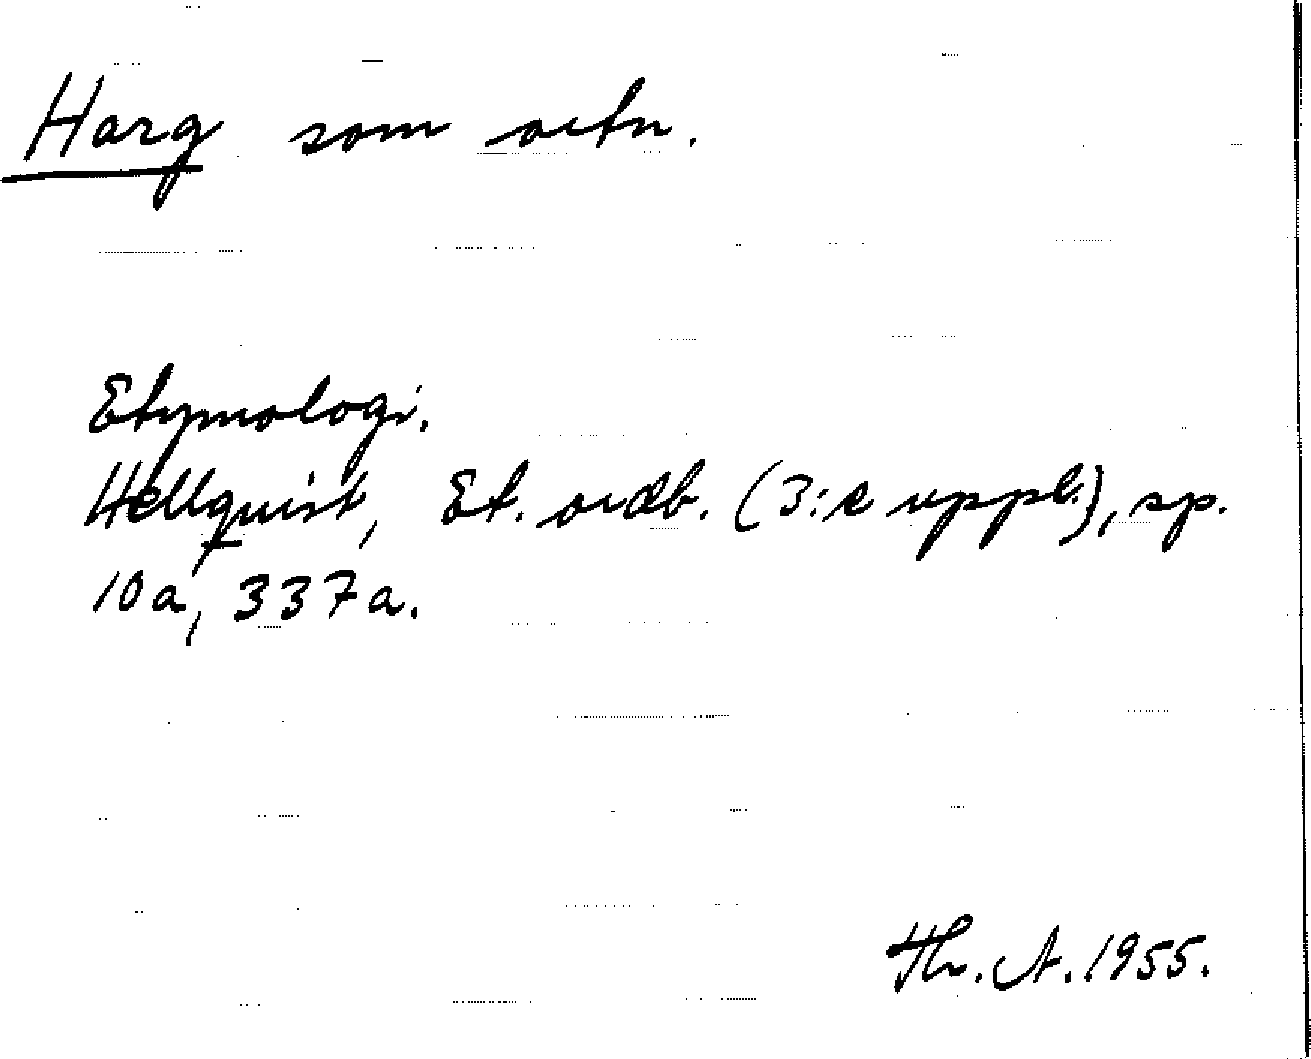 Harg som ortn.
Etymologi.
Hellquist, Et. ordb. (3:e uppl.), sp.
10a, 337a.
Th. A. 1955.